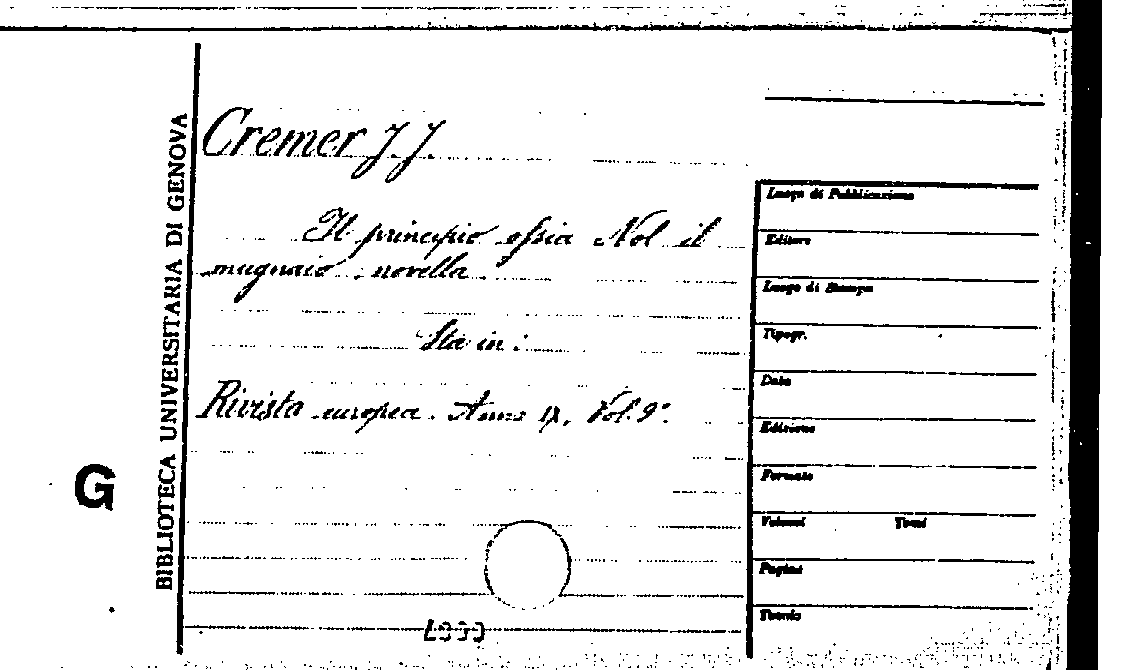 BIBLIOTECA UNIVERSITARIA DI GENOVA
G
Cremer J. J.
Il principio ossia Nol il
mugnaio . novella .
Sta in :
Rivista europea . Anno IX, Vol. 9º.
Luogo di Pubblicazione
Editore
Luogo di Stampa
Tipogr.
Data
Edizione
Formato
Volumi Tomi
Pagine